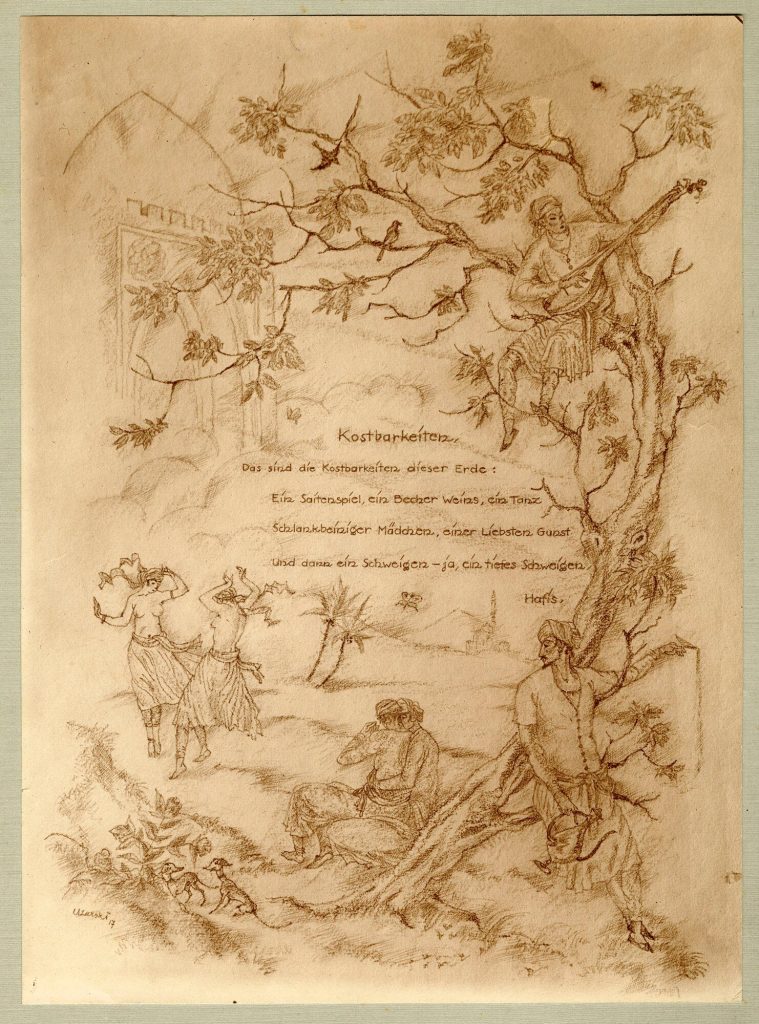 Kostbarkeiten.
Das sind die Kostbarkeiten dieser Erde:
Ein Saitenspiel, ein Becher Weins, ein Tanz
Schlankbeiniger Mädchen, einer Liebsten Gunst
Und dann ein Schweigen – ja, ein tiefes Schweigen.
Hafis.
Uzarski
17